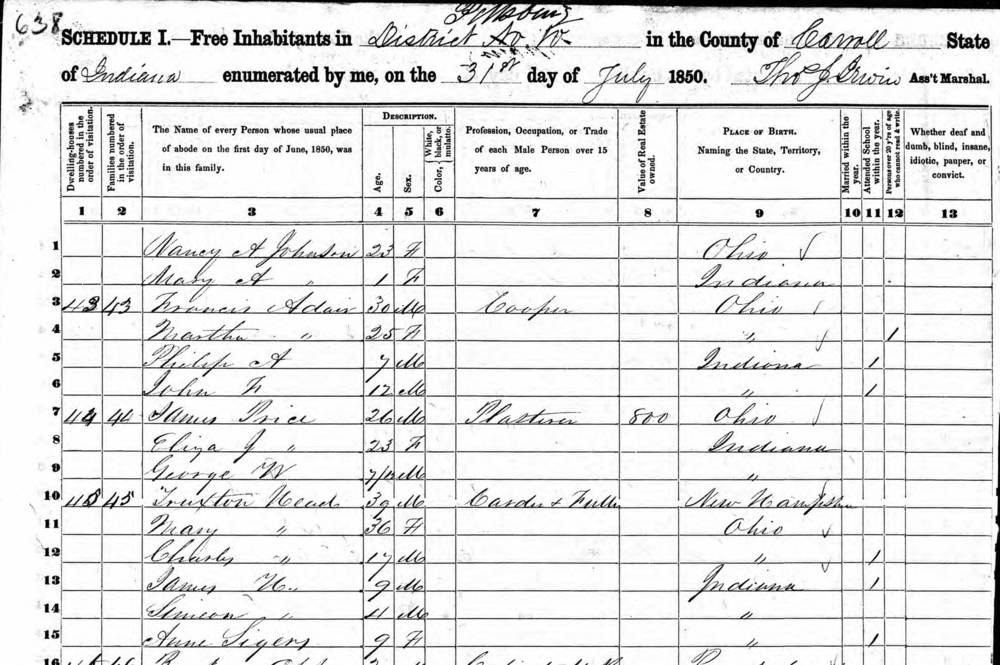 638
Pittsburg
SCHEDULE I.—Free Inhabitants in District No in the County of Carroll State
of Indiana enumerated by me, on the 31st day of July 1850. Tho J. Irwin Ass't Marshal.
Dwelling-houses numbered in the order of visitation. Families numbered in the order of visitation. The Name of every Person whose usual place of abode on the first day of June, 1850, was in this family. DESCRIPTION. Age. Sex. Color, White, black, or mulatto. Profession, Occupation, or Trade of each Male Person over 15 years of age. Value of Real Estate owned. PLACE OF BIRTH. Naming the State, Territory, or Country. Married within the year. Attended School within the year. Persons over 20 y'rs of age who cannot read & write. Whether deaf and dumb, blind, insane, idiotic, pauper, or convict.
1 2 3 4 5 6 7 8 9 10 11 12 13
1 Nancy A Johnson 23 F Ohio
2 Mary A " 1 F Indiana
3 43 43 Francis Adair 30 M Cooper Ohio
4 Martha " 25 F " 1
5 Philip A 7 M Indiana 1
6 John F 12 M " 1
7 44 44 James Price 26 M Plasterer 800 Ohio
8 Eliza J " 23 F Indiana
9 George W 7/12 M "
10 45 45 Truxton Head 39 M Carder & Fuller New Hampshire
11 Mary " 36 F Ohio
12 Charles " 17 M " 1
13 James H " 9 M Indiana 1
14 Simeon " 4 M "
15 Anne Sigers 9 F " 1
16